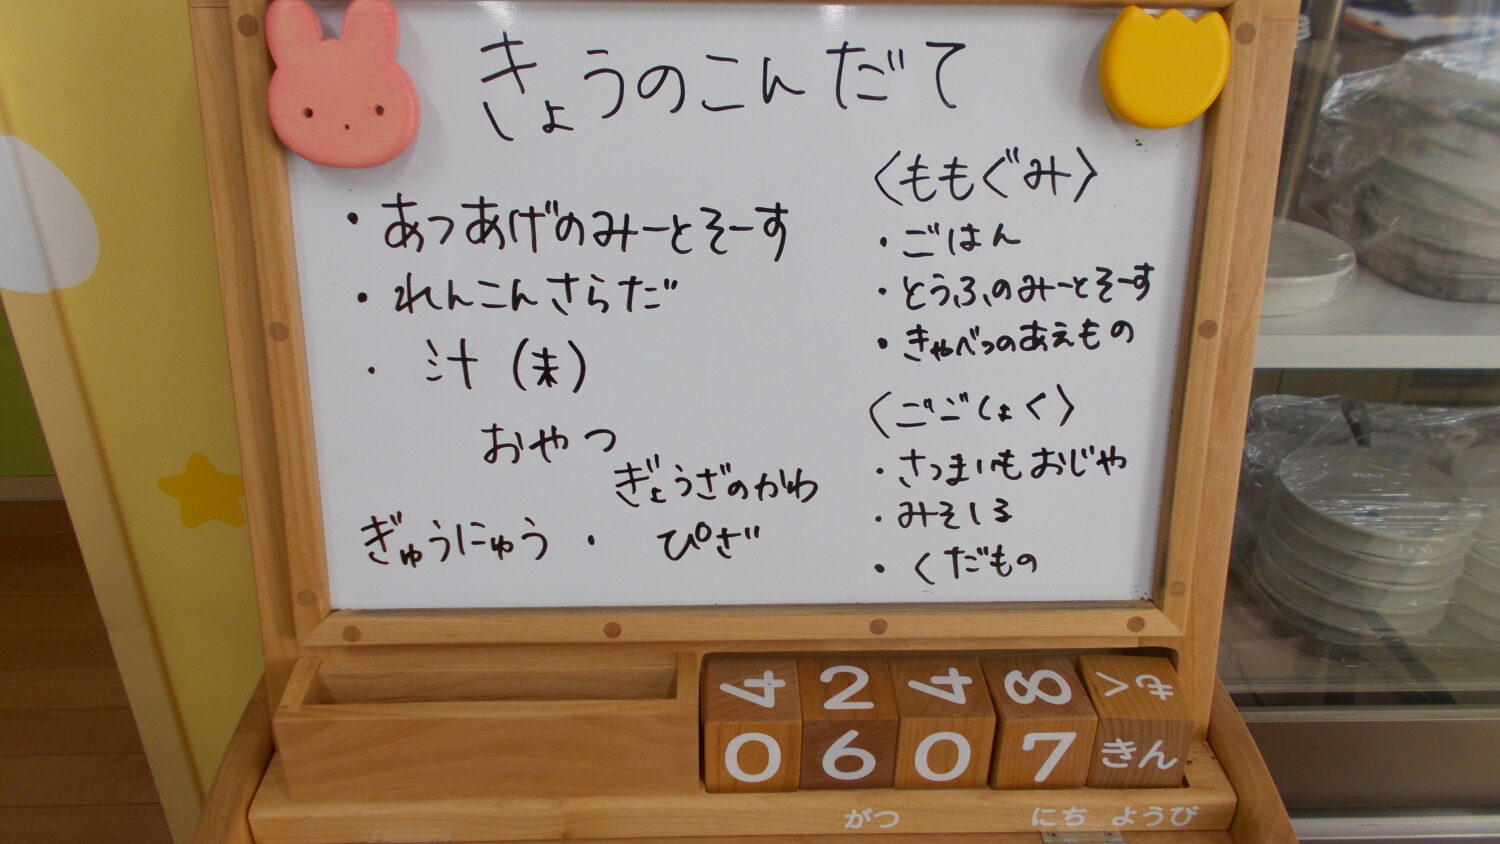 きょうのこんだて
・あつあげのみーとそーす
・れんこんさらだ
・汁(末)
おやつ
ぎゅうにゅう・ぎょうざのかわ
ぴざ
〈ももぐみ〉
・ごはん
・とうふのみーとそーす
・きゃべつのあえもの
〈ごごしょく〉
・さつまいもおじや
・みそしる
・くだもの
4 2 4 8 もく
0 6 0 7 きん
がつ にち ようび